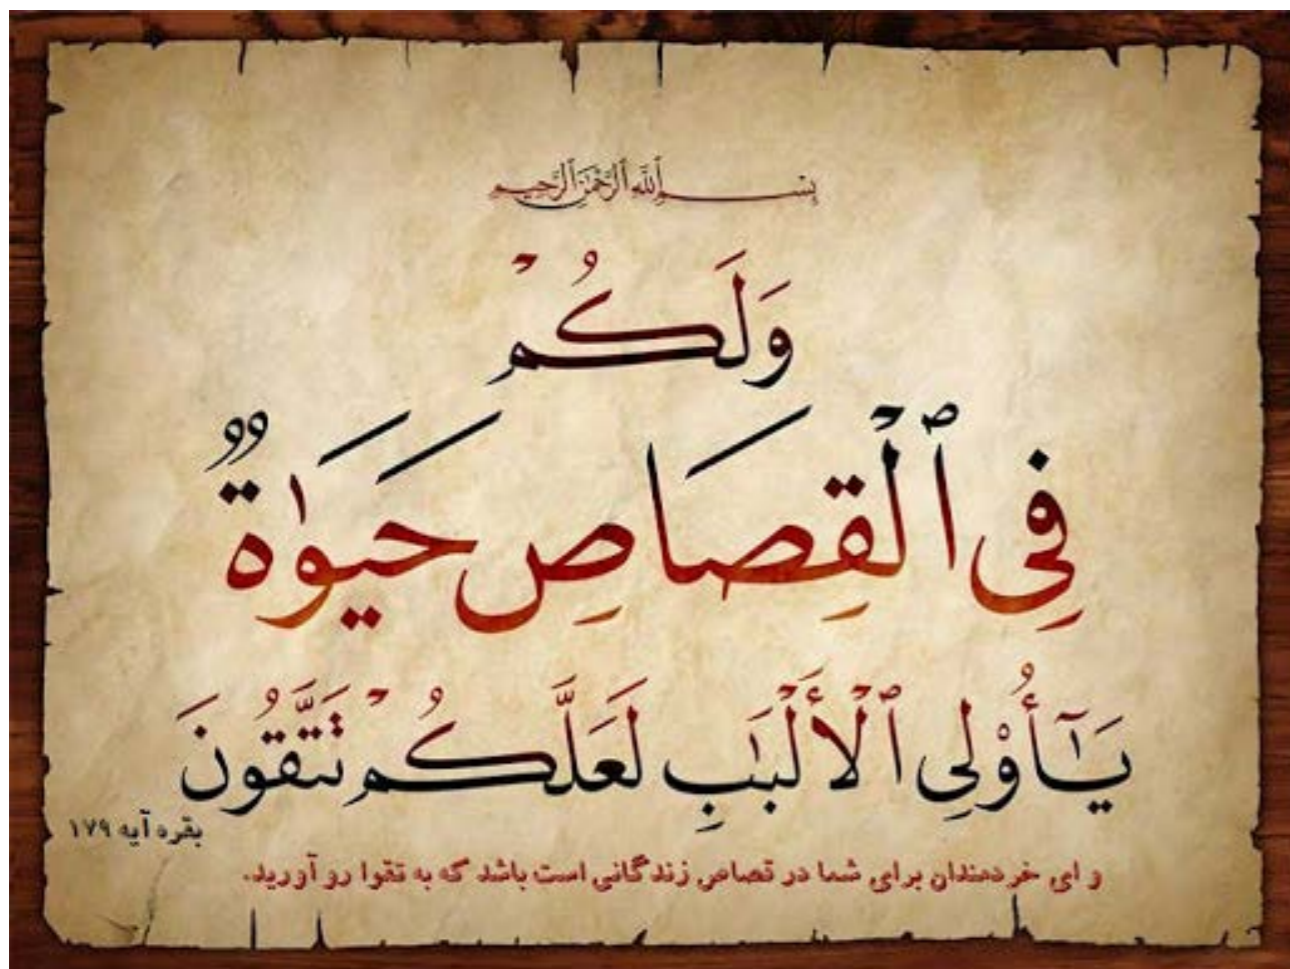 بِسْمِ ٱللَّهِ ٱلرَّحْمَٰنِ ٱلرَّحِيمِ
وَلَكُمْ
فِي ٱلْقِصَاصِ حَيَوٰةٌ
يَـٰٓأُو۟لِي ٱلْأَلْبَـٰبِ لَعَلَّكُمْ تَتَّقُونَ
بقره آیه ۱۷۹
و ای خردمندان برای شما در قصاص زندگانی است باشد که به تقوا رو آورید.